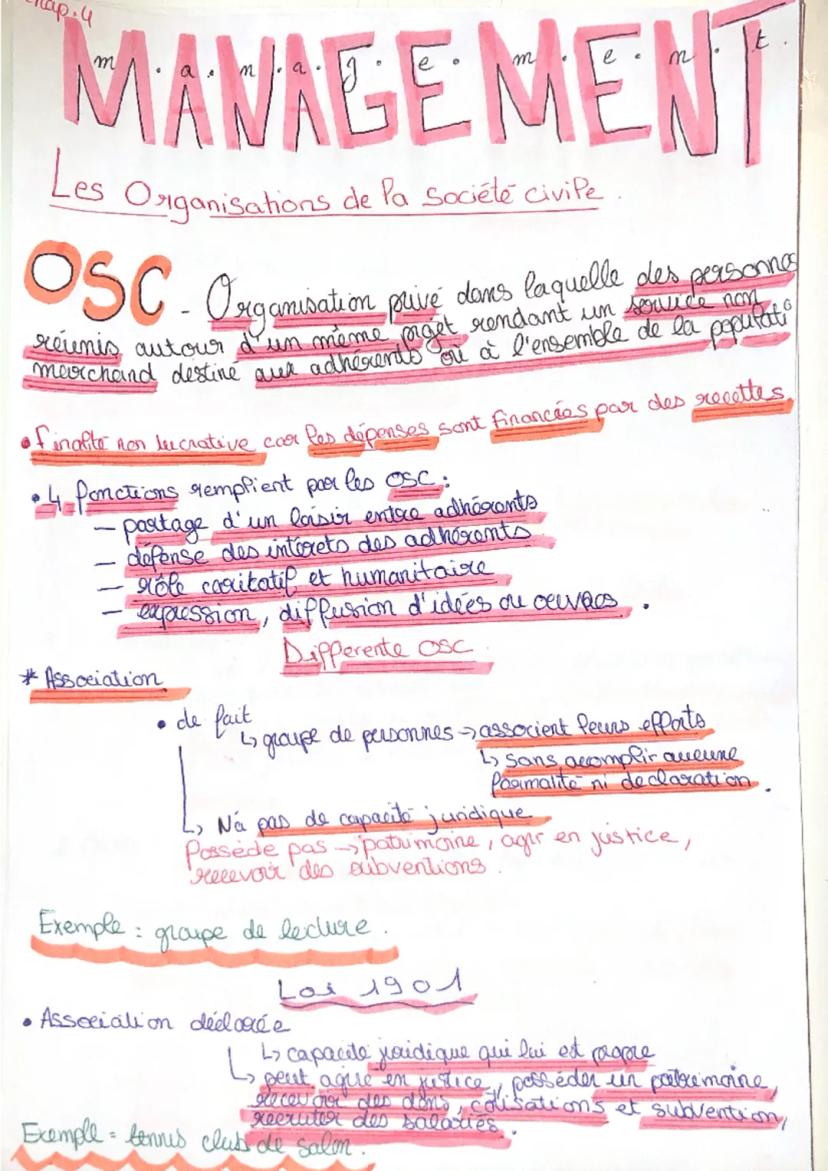 Chap.4
MANAGEMENT
m.a.n.a.g.e.m.e.n.t.
Les Organisations de la société civile.
OSC - Organisation privé dans laquelle des personnes
réunis autour d'un même projet rendant un service non
marchand destiné aux adhérents où à l'ensemble de la populati
• finalité non lucrative car les dépenses sont financées par des recettes
• 4 fonctions remplient par les OSC :
— partage d'un loisir entre adhérants
— défense des intérets des adhérants
— rôle caritatif et humanitaire
— expression, diffusion d'idées ou oeuvres.
Differente OSC
* Association
• de fait
↳ groupe de personnes → associent leurs efforts
↳ sans acomplir aucune
formalité ni declaration.
↳ N'a pas de capacité juridique
Possède pas → patrimoine, agir en justice,
recevoir des subventions.
Exemple : groupe de lecture.
Loi 1901
• Association déclarée
↳ capacité juridique qui lui est propre
↳ peut agir en justice, posséder un patrimoine,
recevoir des dons, cotisations et subvention,
recruter des salariés.
Exemple = tennis club de salon.